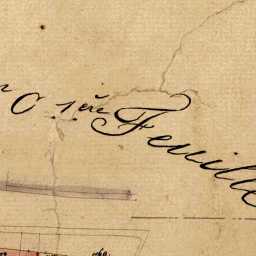 n C 1ère Feuille